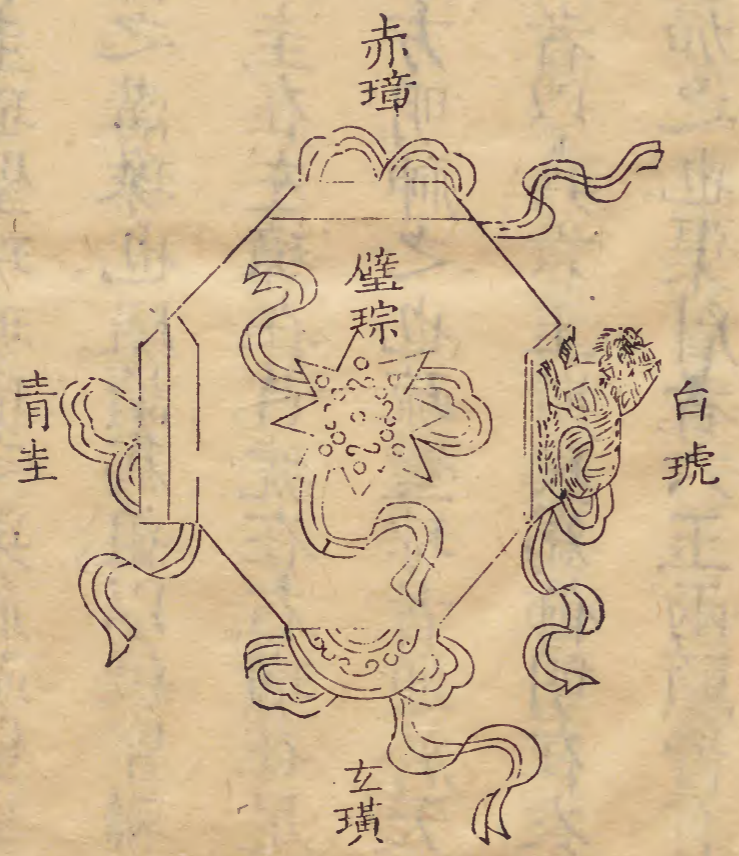 赤璋
璧琮
青圭
白琥
玄璜